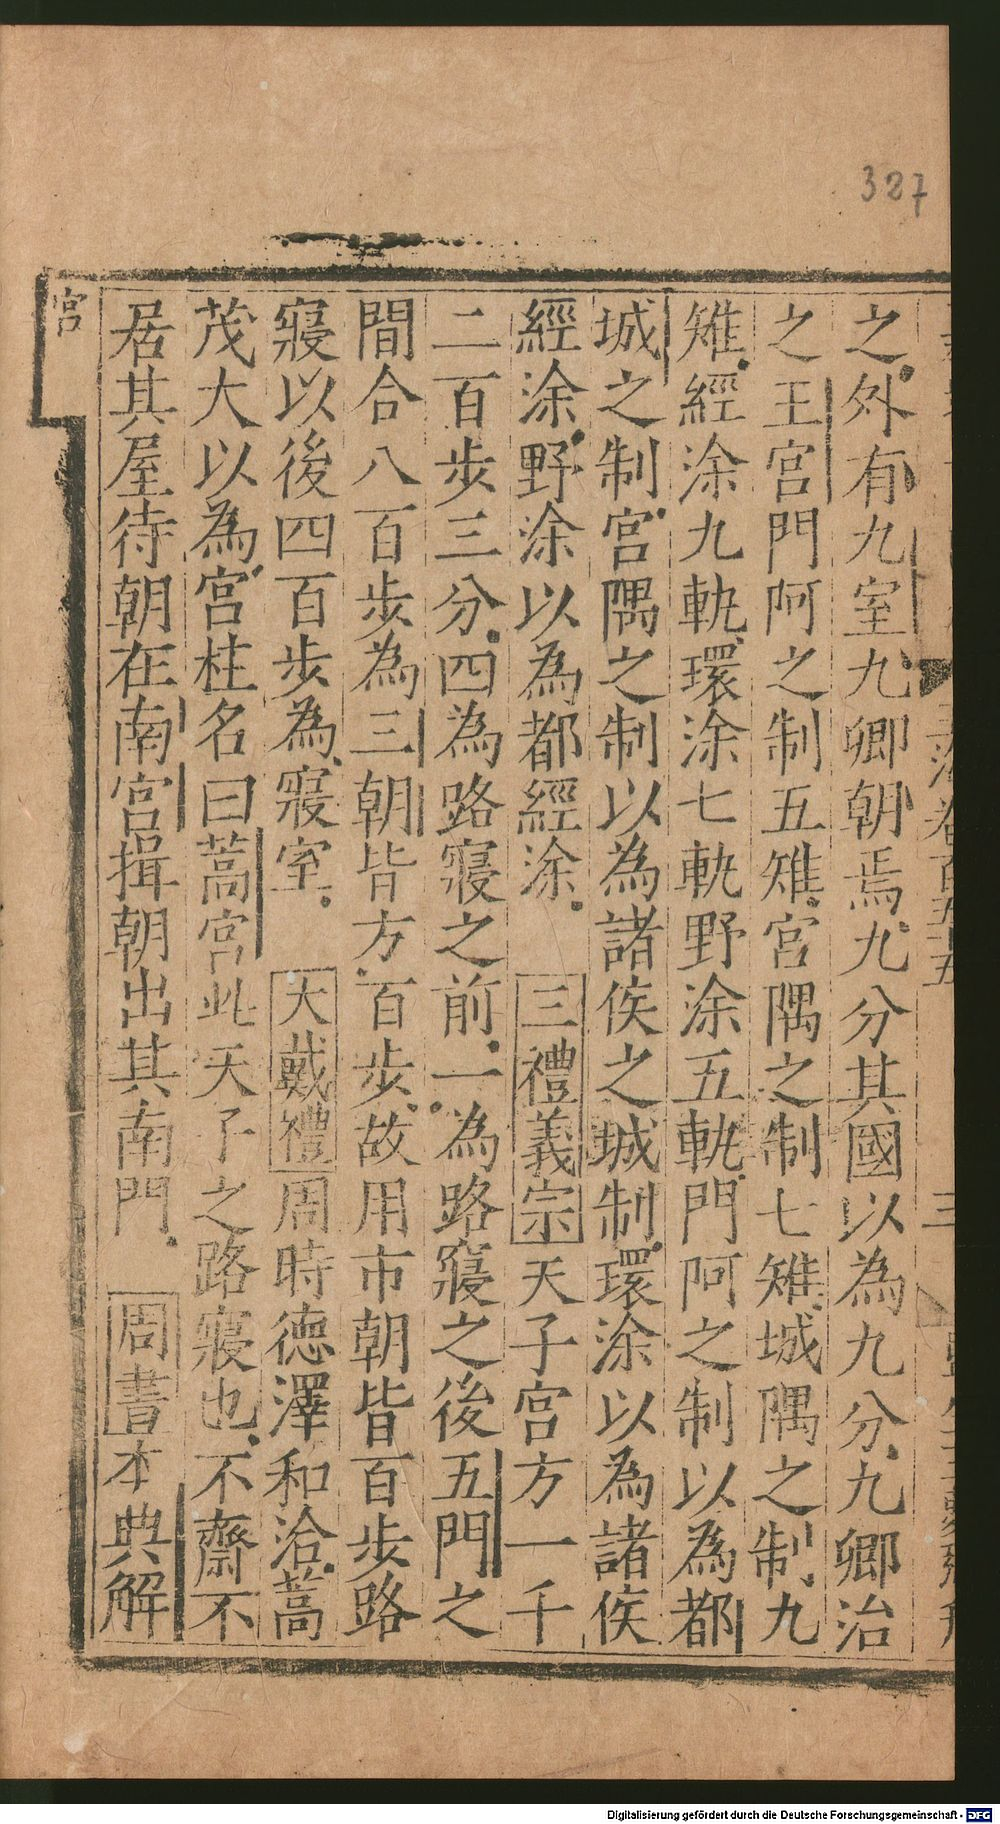 327
之外有九室九卿朝焉九分其國以為九分九卿治
之王宮門阿之制五雉宮隅之制七雉城隅之制九
雉經涂九軌環涂七軌野涂五軌門阿之制以為都
城之制宮隅之制以為諸侯之城制環涂以為諸侯
經涂野涂以為都經涂 三禮義宗天子宮方一千
二百步三分四為路寢之前一為路寢之後五門之
間合八百步為三朝皆方百步故用市朝皆百步路
寢以後四百步為寢室 大戴禮周時德澤和洽蒿
茂大以為宮柱名曰蒿宮此天子之路寢也不齋不
居其屋待朝在南宮揖朝出其南門 周書本典解
宮
Digitalisierung gefördert durch die Deutsche Forschungsgemeinschaft - DFG